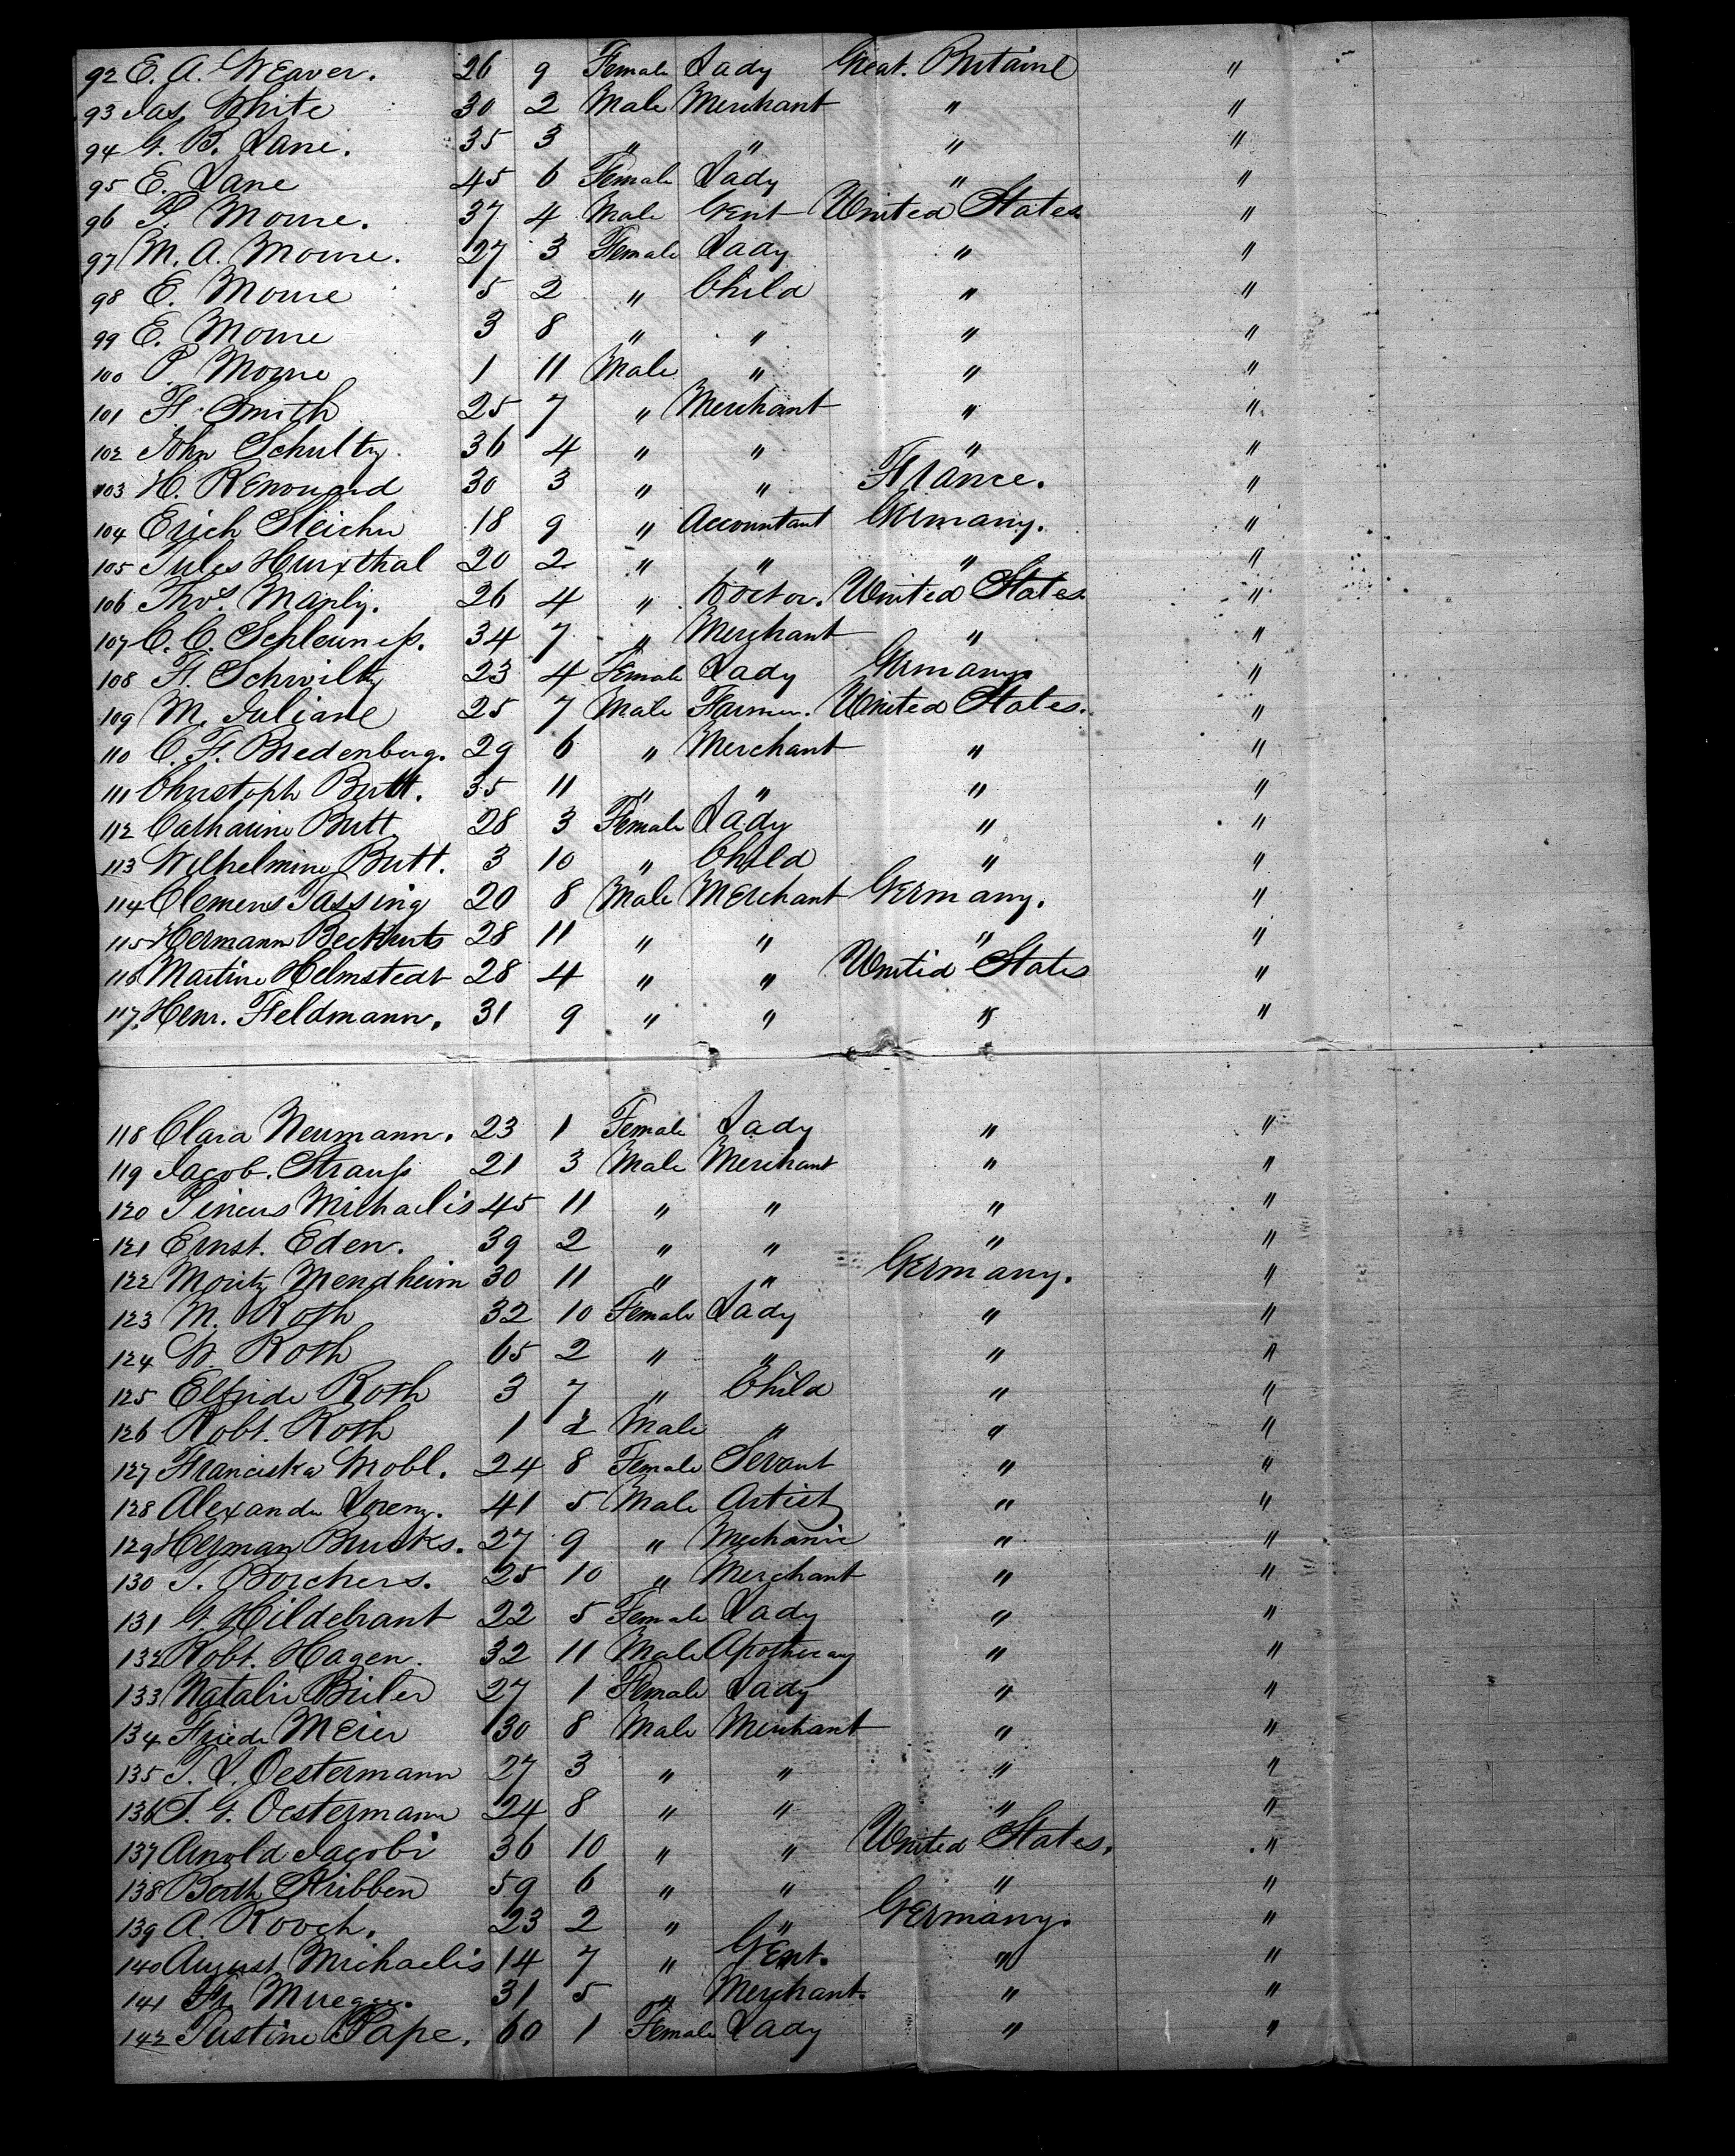 92 E. A. Weaver. 26 9 Female Lady Great. Britaine "
93 Jas. White 30 2 Male Merchant " "
94 G. B. Lane. 35 3 " " " "
95 E. Lane 45 6 Female Lady " "
96 P. Mowe. 37 4 Male Gent United States "
97 M. A. Mowe. 27 3 Female Lady " "
98 E. Mowe 5 2 " Child " "
99 E. Mowe 3 8 " " " "
100 P. Mowe 1 11 Male " " "
101 F. Smith 25 7 " Merchant " "
102 John Schultz. 36 4 " " " "
103 H. Renouard 30 3 " " France. "
104 Erich 18 9 " Accountant Germany. "
105 Jules Hurxthal 20 2 " " " "
106 Thos. Manly. 26 4 " Doctor. United States "
107 C. C. Schleuness. 34 7 " Merchant " "
108 F. Schwiltz 23 4 Female Lady Germany "
109 M. Juliane 25 7 Male Farmer. United States. "
110 C. F. Bredenberg. 29 6 " Merchant " "
111 Christoph Butt. 35 11 " " " "
112 Catharine Butt 28 3 Female Lady " "
113 Wilhelmine Butt. 3 10 " Child " "
114 Clemens Tassing 20 8 Male Merchant Germany. "
115 Hermann Beckurts 28 11 " " " "
116 Martine Helmstedt 28 4 " " United States "
117. Henr. Feldmann. 31 9 " " " "
118 Clara Neumann. 23 1 Female Lady " "
119 Jacob. Strauss 21 3 Male Merchant " "
120 Pincus Michaelis 45 11 " " " "
121 Ernst. Eden. 39 2 " " " "
122 Moritz Mendheim 30 11 " " Germany. "
123 M. Roth 32 10 Female Lady " "
124 W. Roth 65 2 " " " "
125 Elfride Roth 3 7 " Child " "
126 Robt. Roth 1 2 Male " " "
127 Franciska Mobl. 24 8 Female Servant " "
128 Alexander Lorenz. 41 5 Male Artist " "
129 Herman Bucks. 27 9 " Mechanic " "
130 T. Borchers. 25 10 " Merchant " "
131 G. Hildebrant 22 5 Female Lady " "
132 Robt. Hagen. 32 11 Male Apothecary " "
133 Natalie Biiler 27 1 Female Lady " "
134 Friedr Meier 30 8 Male Merchant " "
135 J. L. Oestermann 27 3 " " " "
136 J. G. Oestermann 24 8 " " " "
137 Arnold Jacobi 36 10 " " United States. "
138 Berth Kribben 59 6 " " " "
139 A. Rooch. 23 2 " " Germany. "
140 August Michaelis 14 7 " Gent. " "
141 Fr. Muegge. 31 5 " Merchant. " "
142 Justine Pape. 60 1 Female Lady " "